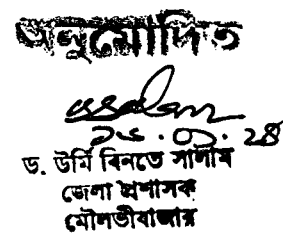 অনুমোদিত
ড. উর্মি বিনতে সালাম
জেলা প্রশাসক
মৌলভীবাজার